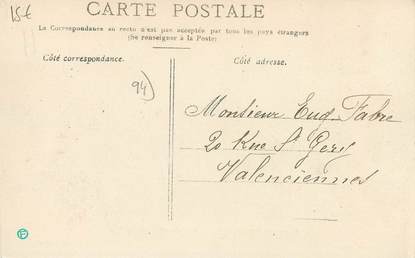 15€
CARTE POSTALE
La Correspondance au recto n'est pas acceptée par tous les pays étrangers
(Se renseigner à la Poste)
Côté correspondance.
Côté adresse.
94)
Monsieur Eug. Fabre
20 Rue St Gery
Valenciennes